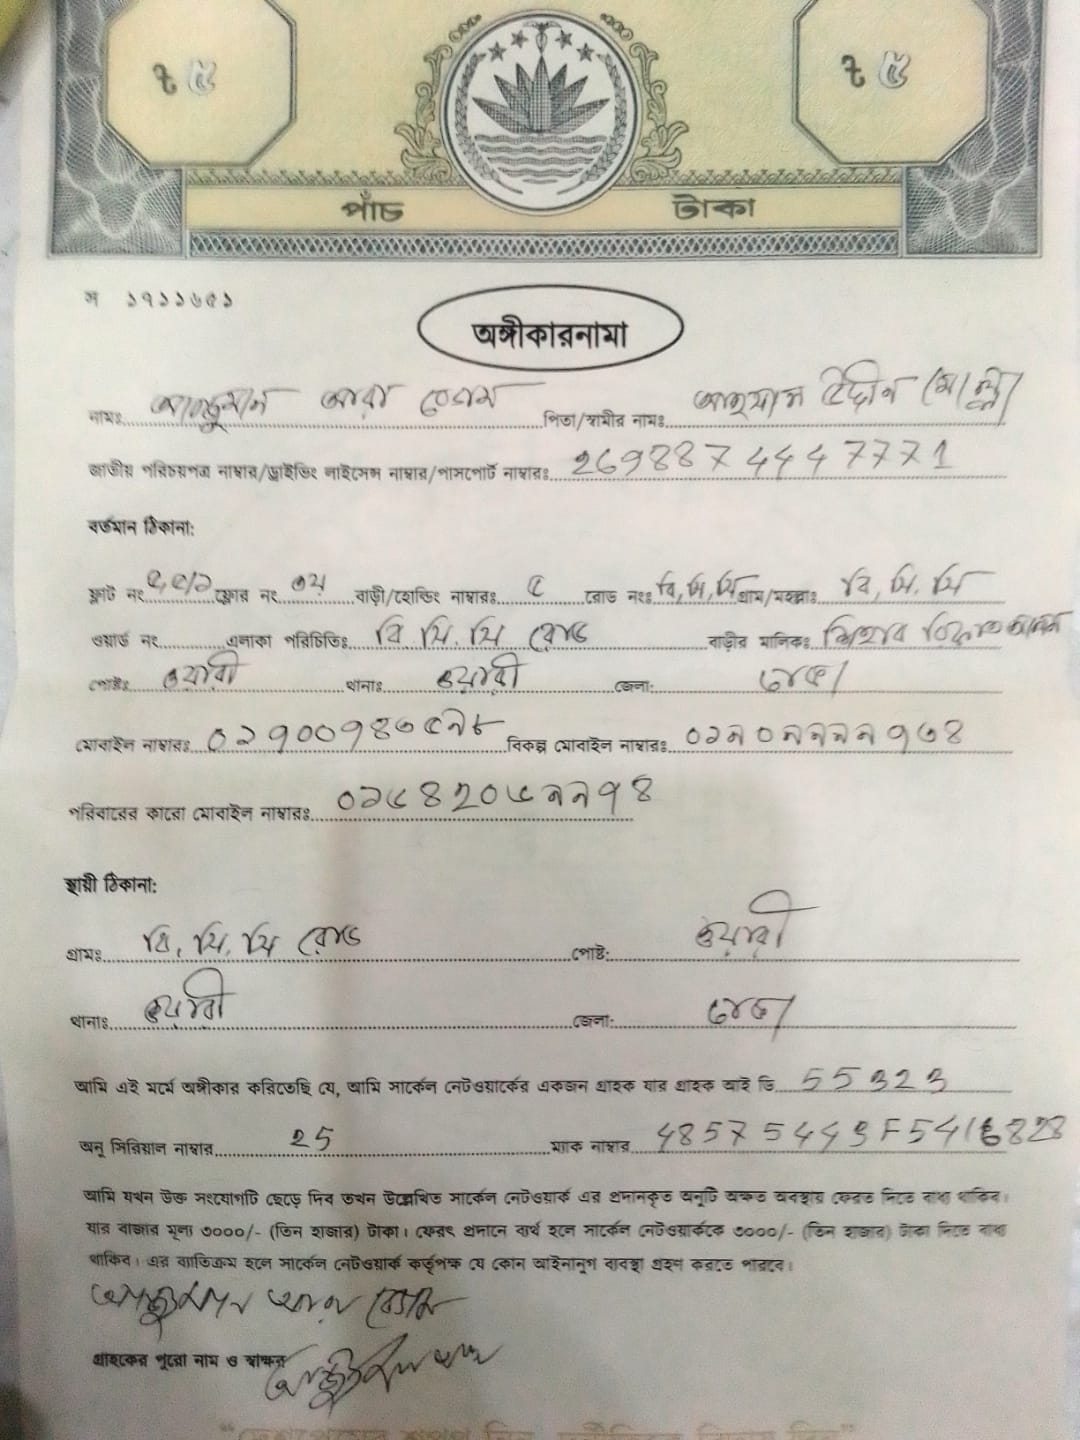 ৳ ৫ ৳ ৫
পাঁচ টাকা
স ১৭১১৬৫১
অঙ্গীকারনামা
নামঃ আঞ্জুমান আরা বেগম পিতা/স্বামীর নামঃ উদ্দীন মোল্লা
জাতীয় পরিচয়পত্র নাম্বার/ড্রাইভিং লাইসেন্স নাম্বার/পাসপোর্ট নাম্বারঃ 2698874447771
বর্তমান ঠিকানা:
ফ্লাট নং ফ্লোর নং ৩য় বাড়ী/হোল্ডিং নাম্বারঃ ৫ রোড নংঃ বি, সি, সি গ্রাম/মহল্লাঃ বি, সি. সি
ওয়ার্ড নং এলাকা পরিচিতিঃ বি সি. সি রোড বাড়ীর মালিকঃ
পোষ্টঃ ওয়ারী থানাঃ ওয়ারী জেলা: ঢাকা
মোবাইল নাম্বারঃ ০১৭০০৭৪৩৫৯৮ বিকল্প মোবাইল নাম্বারঃ ০১৯০৯৯৯৯৭৩৪
পরিবারের কারো মোবাইল নাম্বারঃ ০১৬৪২০৬৯৯৭৪
স্থায়ী ঠিকানা:
গ্রামঃ বি, সি, সি রোড পোষ্ট: ওয়ারী
থানাঃ ওয়ারী জেলা: ঢাকা
আমি এই মর্মে অঙ্গীকার করিতেছি যে, আমি সার্কেল নেটওয়ার্কের একজন গ্রাহক যার গ্রাহক আই ডি 55323
অনু সিরিয়াল নাম্বার 25 ম্যাক নাম্বার
আমি যখন উক্ত সংযোগটি ছেড়ে দিব তখন উল্লেখিত সার্কেল নেটওয়ার্ক এর প্রদানকৃত অনুটি অক্ষত অবস্থায় ফেরত দিতে বাধ্য থাকিব।
যার বাজার মূল্য ৩০০০/- (তিন হাজার) টাকা। ফেরৎ প্রদানে ব্যর্থ হলে সার্কেল নেটওয়ার্ককে ৩০০০/- (তিন হাজার) টাকা দিতে বাধ্য
থাকিব। এর ব্যতিক্রম হলে সার্কেল নেটওয়ার্ক কর্তৃপক্ষ যে কোন আইনানুগ ব্যবস্থা গ্রহণ করতে পারবে।
আঞ্জুমান আরা বেগম
গ্রাহকের পুরো নাম ও স্বাক্ষর